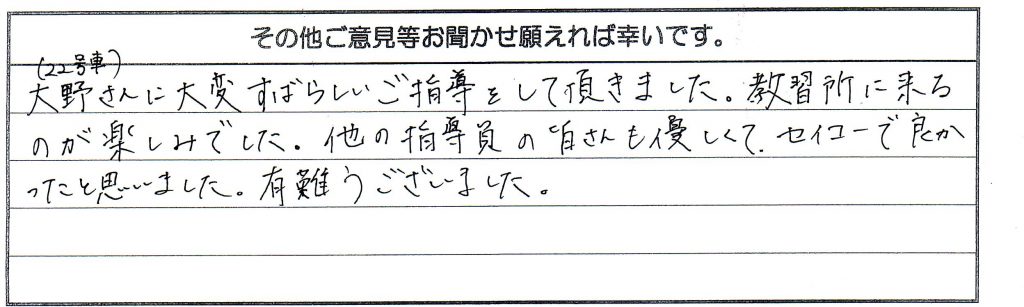 その他ご意見等お聞かせ願えれば幸いです。
(22号車)
大野さんに大変すばらしいご指導をして頂きました。教習所に来る
のが楽しみでした。他の指導員の皆さんも優しくて、セイコーで良か
ったと思いました。有難うございました。